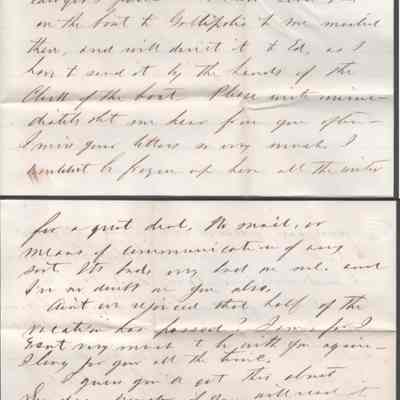 on the boat to Gallipolis to me mailed
there, and will direct it to Ed, as I
have to send it by the hands of the
Clerk of the boat. Please write imme-
diately let me hear from you often—
I miss your letters so very much. I
wouldn't be frozen up here all the winter
for a great deal. No mail, or
means of communication of any
sort. Its bad, very bad on me. and
I'm no doubt on you also.
Aint we rejoiced that half of the
vacation has passed? I am for I
want very much to be with you again—
I long for you all the time.
I guess you'll get this about